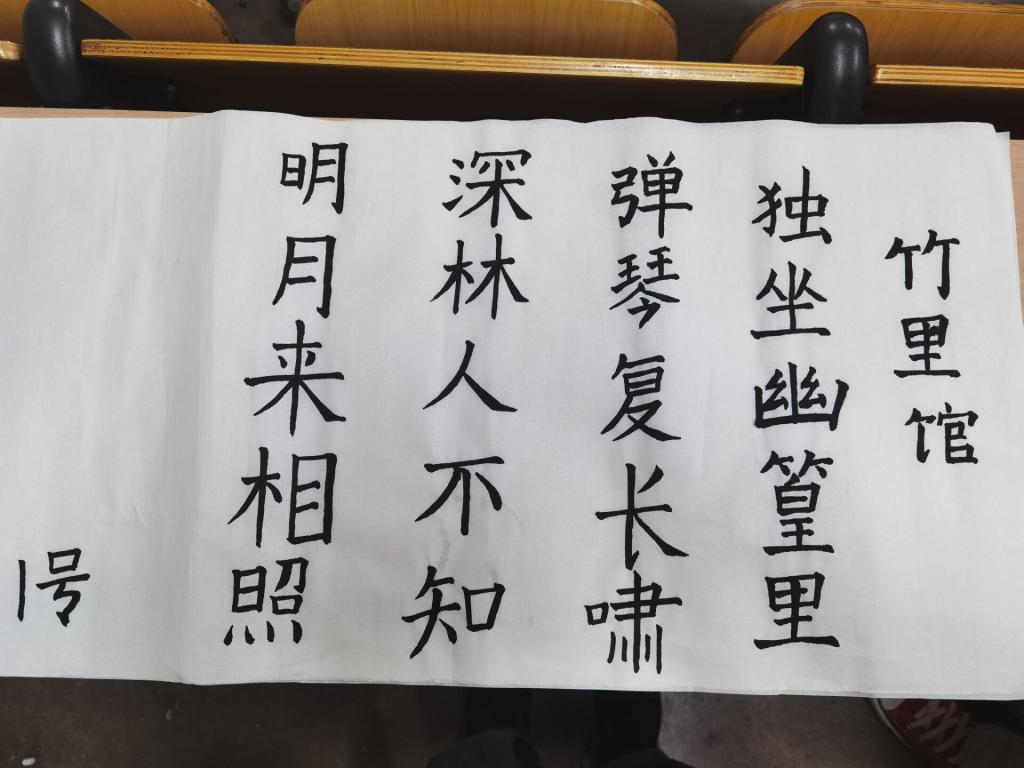 竹里馆
独坐幽篁里
弹琴复长啸
深林人不知
明月来相照
1号